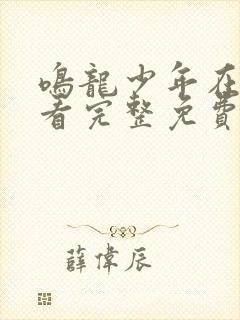 鳴龍少年在
看完整免費
薛偉辰